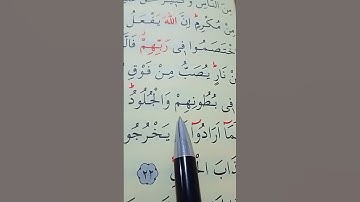 مِنَ النَّاسِ وَكَثِيرٌ حَقَّ
مِنْ مُكْرِمٍ اِنَّ اللّٰهَ يَفْعَلُ
اخْتَصَمُوا فِى رَبِّهِمْ فَالَّ
مِنْ نَارٍ يُصَبُّ مِنْ فَوْقِ
فِى بُطُونِهِمْ وَالْجُلُودُ
اَرَادُوا يَخْرُجُو
ذَابَ الْحَ
٢٢